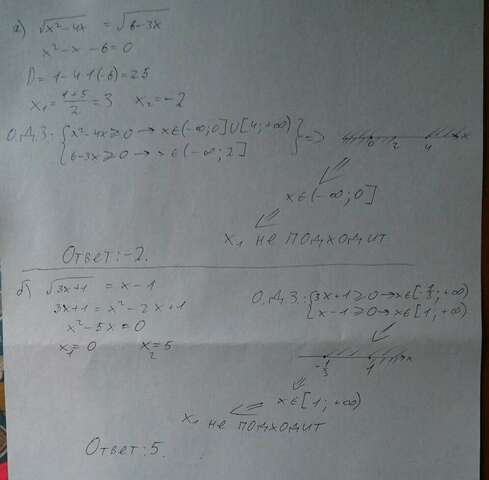 а) √x²-4x = √6-3x
x²-x-6=0
D=1-4·1(-6)=25
x₁=(1+5)/2=3 x₂=-2
О.Д.З: { x²-4x≥0 → x∈(-∞;0]∪[4;+∞)
6-3x≥0 → x∈(-∞;2] } =>
0 2 4 x
x∈(-∞;0]
x₁ не подходит
Ответ: -2.
б) √3x+1 = x-1
3x+1=x²-2x+1
x²-5x=0
x₁=0 x₂=5
О.Д.З: { 3x+1≥0→x∈[-1/3;+∞)
x-1≥0→x∈[1;+∞)
-1/3 1 x
x∈[1;+∞)
x₁ не подходит
Ответ: 5.